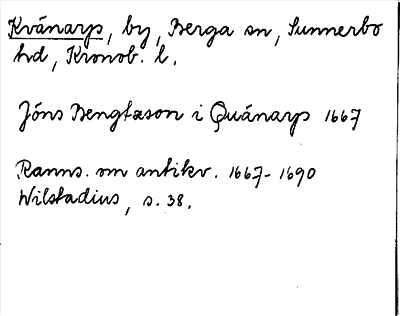 Kvänarp, by, Berga sn, Sunnerbo
hd, Kronob. l.
Jöns Bengtzson i Quänarp 1667
Ranns. om antikv. 1667-1690
Wilstadius, s. 38.